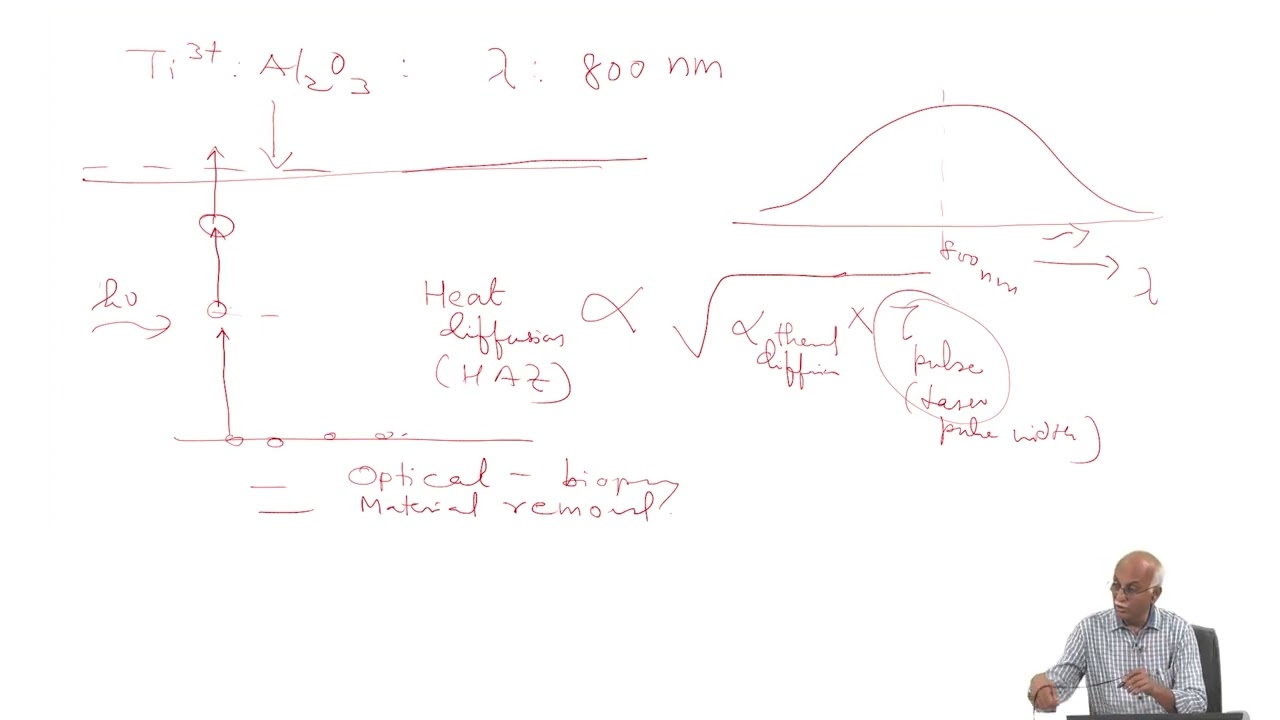 Ti³⁺ : Al₂O₃ : λ : 800 nm
800 nm
λ
hν
Heat diffusion (HAZ) ∝ √ α thermal diffusion × τ pulse (Laser pulse width)
Optical – biopsy
Material removal